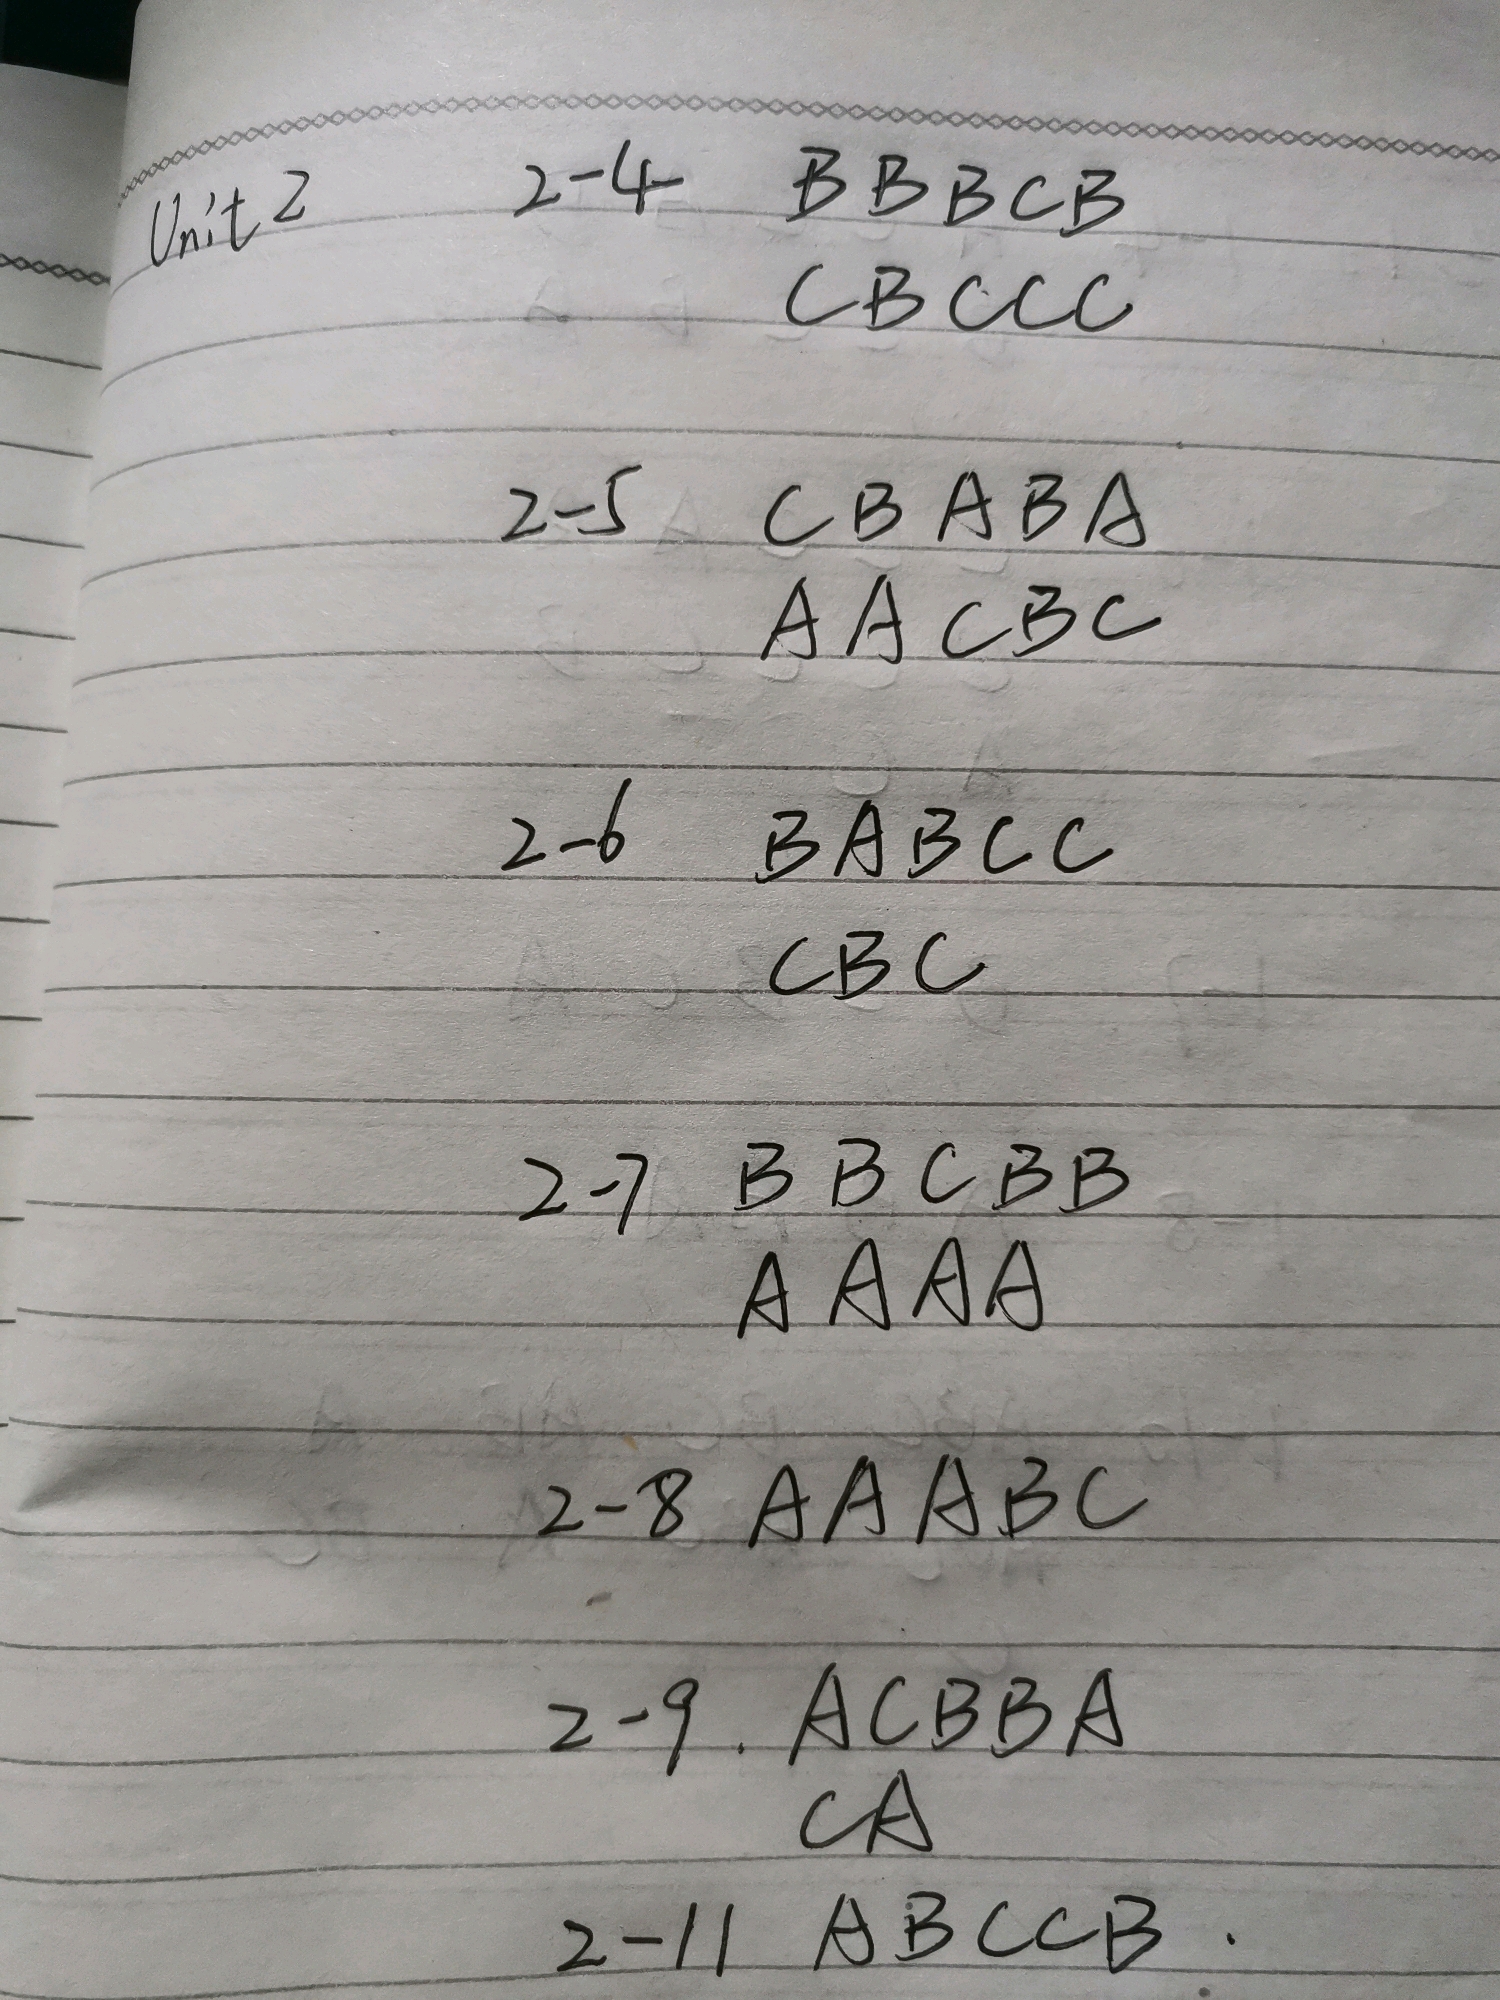 Unit 2 2-4 BBBCB
CBCCC
2-5 CBABA
AACBC
2-6 BABCC
CBC
2-7 BBCBB
AAAA
2-8 AAABC
2-9. ACBBA
CA
2-11 ABCCB.